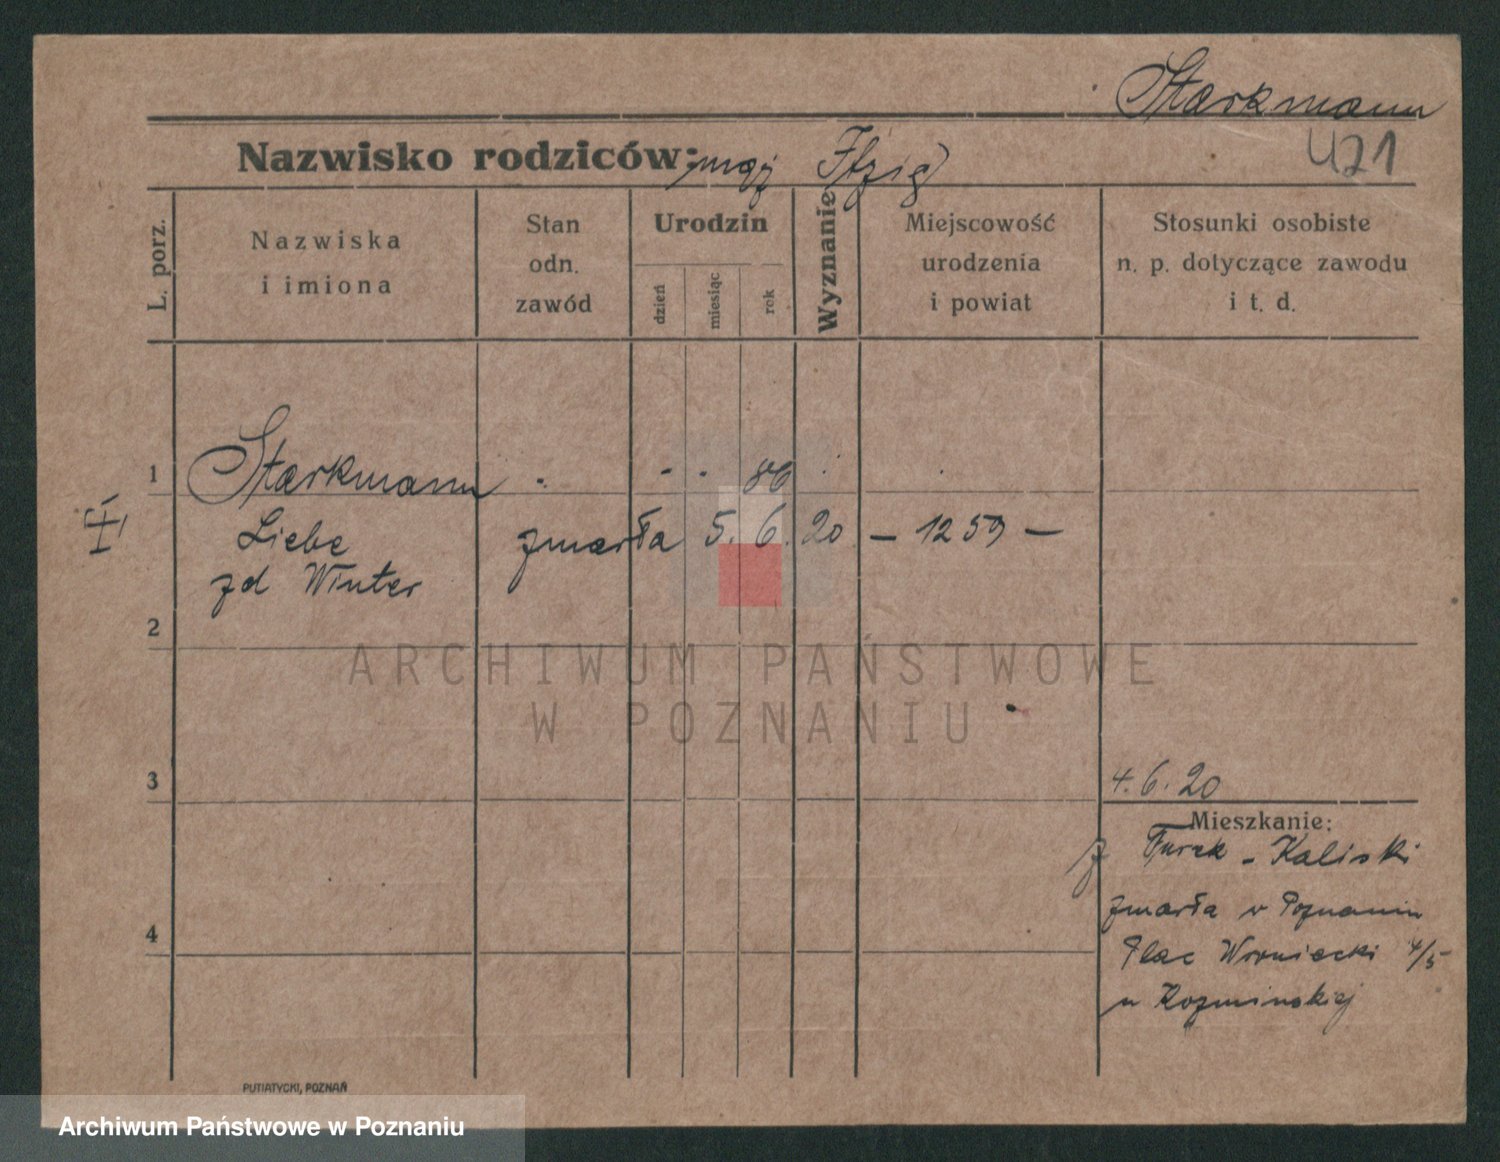 Starkmann
421
Nazwisko rodziców: mąż Itzig
L. porz.
Nazwiska
i imiona
Stan
odn.
zawód
Urodzin
dzień
miesiąc
rok
Wyznanie
Miejscowość
urodzenia
i powiat
Stosunki osobiste
n. p. dotyczące zawodu
i t. d.
1 Starkmann - - - 86
Liebe zmarła 5. 6. 20 – 1259 –
zd Winter
2
ARCHIWUM PAŃSTWOWE
W POZNANIU
3
4.6.20
Mieszkanie:
z Turek - Kaliski
4
zmarła w Poznaniu
Plac Wroniecki 4/5
u Kozminskiej
PUTIATYCKI, POZNAŃ
Archiwum Państwowe w Poznaniu